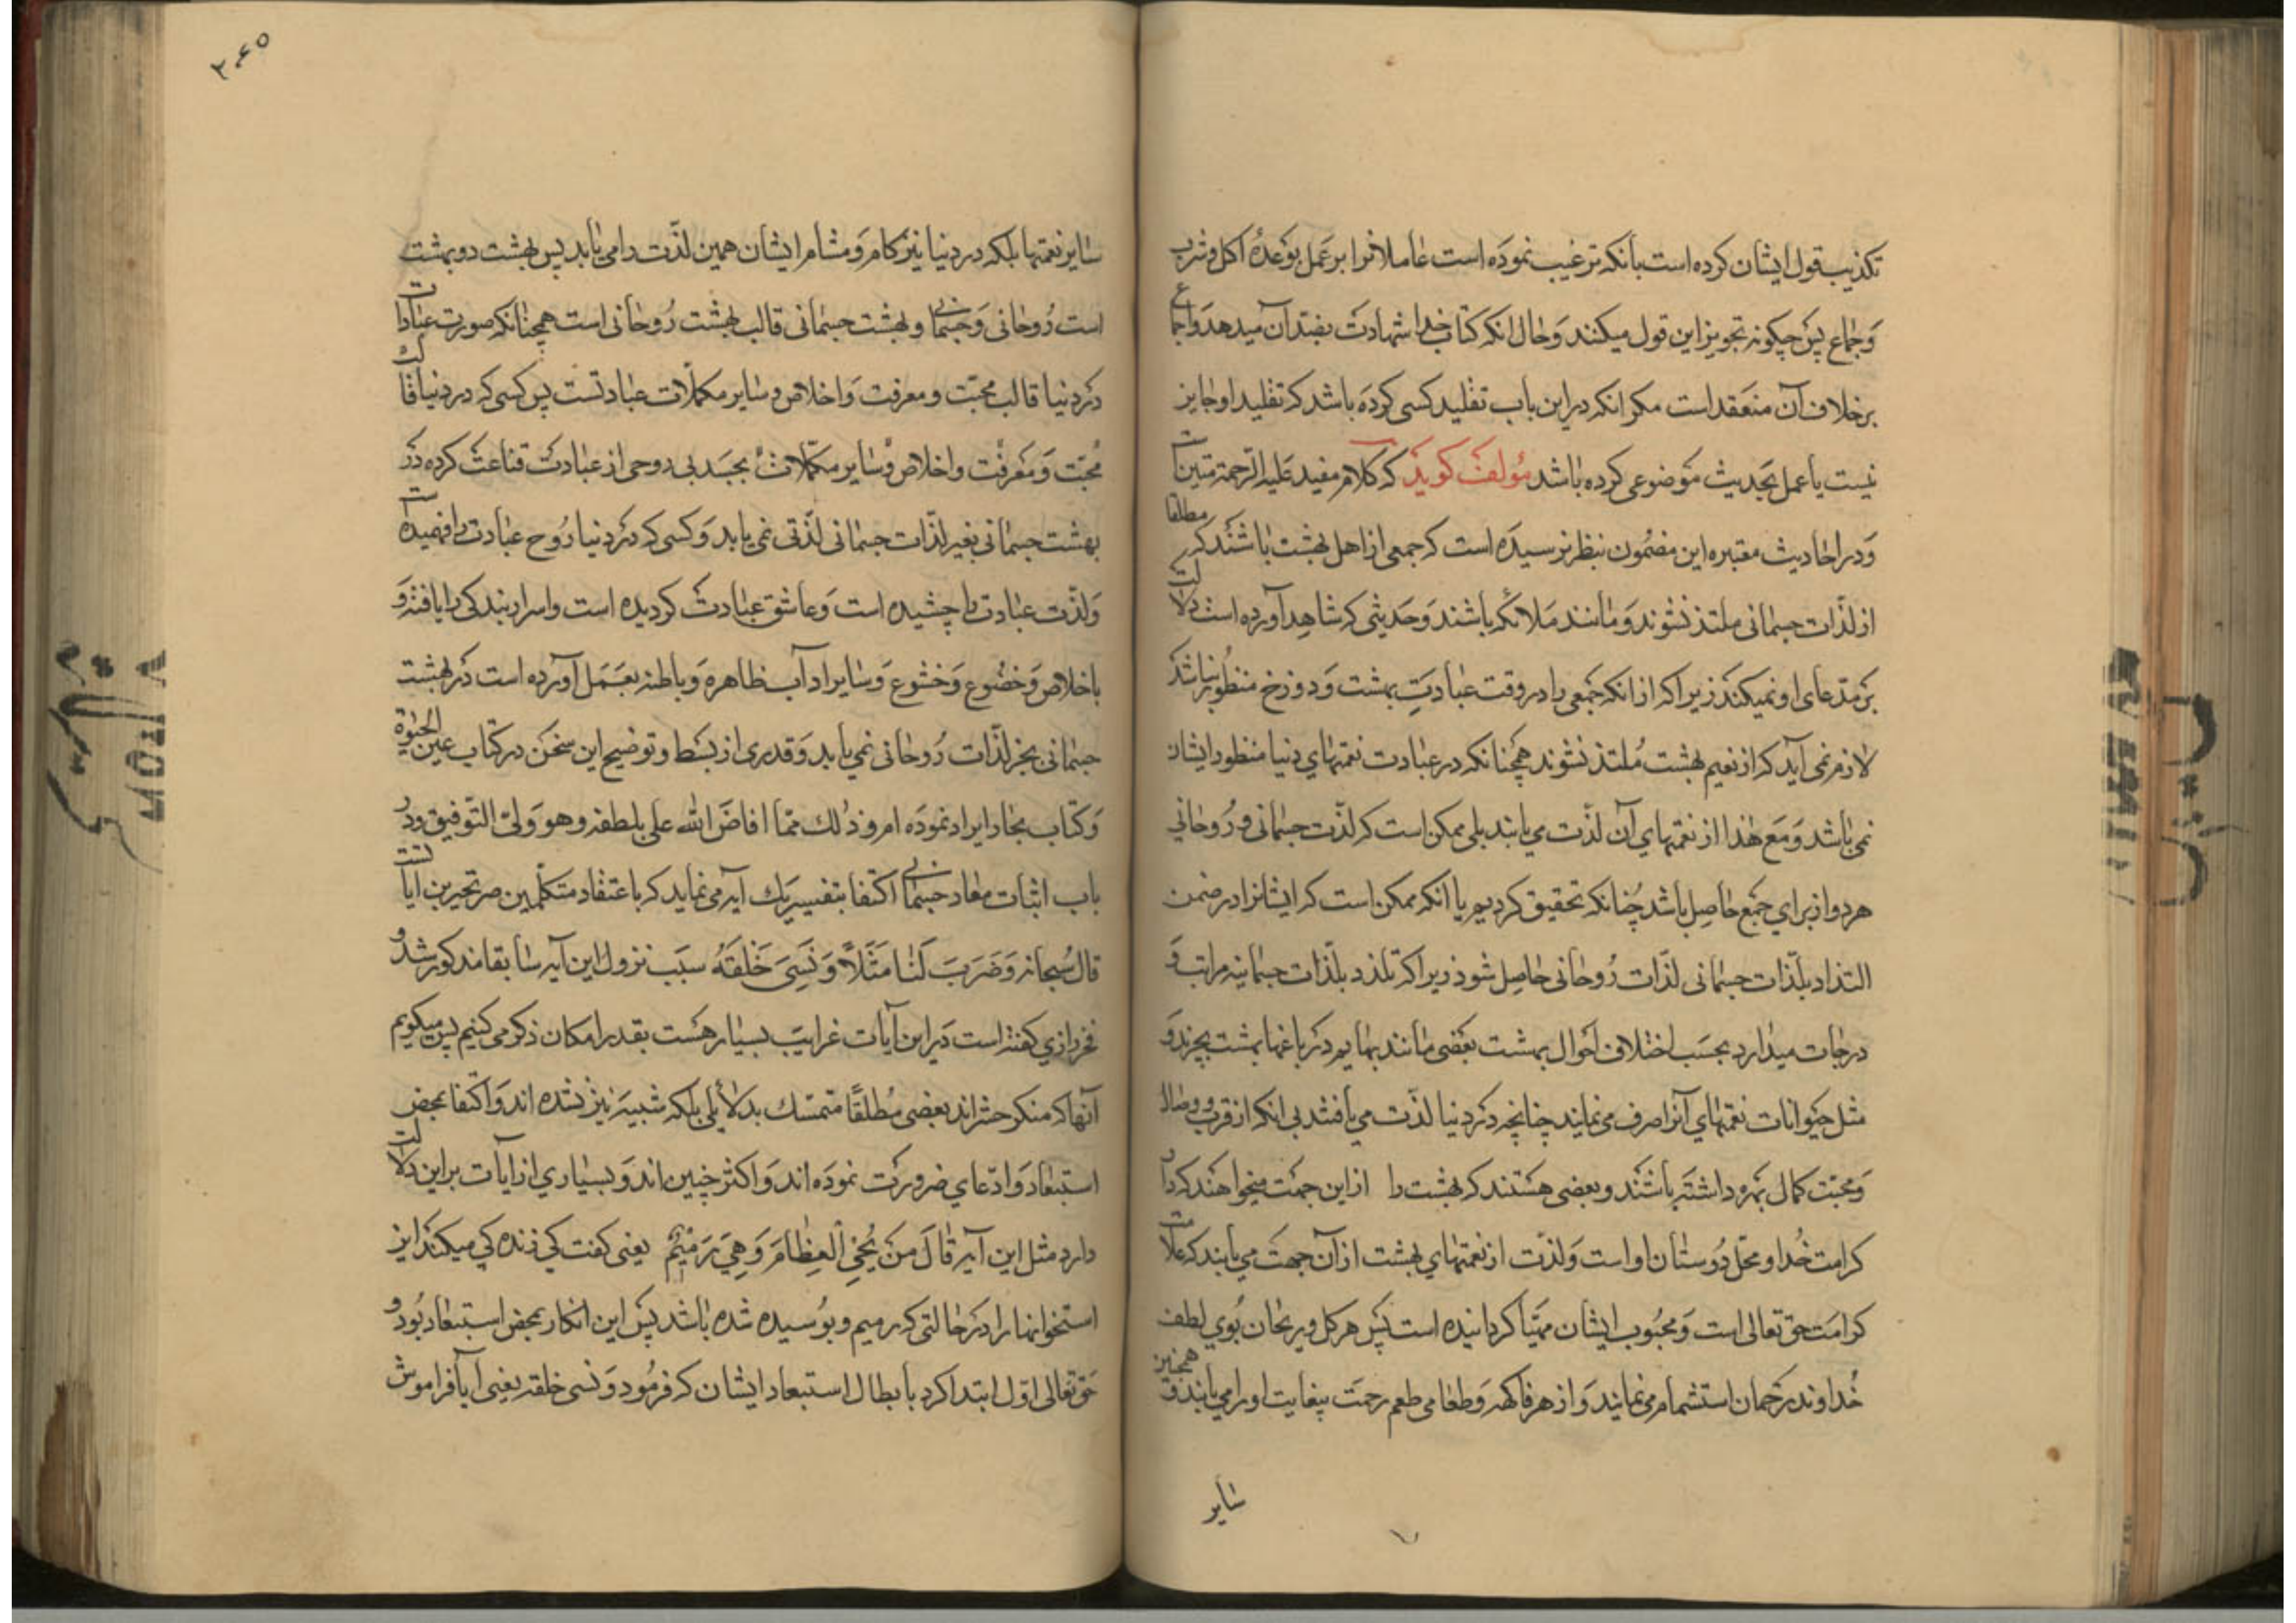 تکذیب قول ایشان کرده است بآنکه ترغیب نموده است عاملانرا بر عمل بوعدهٔ اکل و شرب
و جماع پس چگونه تجویز این قول میکنند و حال آنکه کتاب خدا شهادت بضد آن میدهد و اجماع
برخلاف آن منعقد است مکر انکه در این باب تقلید کسی کرده باشد که تقلید او جایز
نیست یا عمل بحدیث موضوعی کرده باشد مؤلف کوید که کلام مفید علیه الرحمة متین است
و در احادیث معتبره این مضمون بنظر نرسیده است که جمعی از اهل بهشت باشند که مطلقا
از لذّات جسمانی ملتذ نشوند و مانند ملائکه باشند و حدیثی که شاهد آورده است دلالت
بر مدّعای او نمیکند زیرا که از انکه جمعی را در وقت عبادت بهشت و دوزخ منظور نباشد
لازم نمی آید که از نعیم بهشت مُلتذ نشوند همچنانکه در عبادت نعمتهای دنیا منظور ایشان
نمی باشد و مع هذا از نعمتهای آن لذّت می یابند بلی ممکن است که لذّت جسمانی و رُوحانی
هر دو از برای جمع حاصل باشد چنانکه تحقیق کردیم یا انکه ممکن است که ایشانرا در ضمن
التذاد بلذّات جسمانی لذّات رُوحانی حاصل شود زیرا که تلذد بلذّات جسمانیه مراتب و
درجات میدارد بحسب اختلاف احوال بهشت بعضی مانند بهایم در باغها بهشت بچرند و
مثل حیوانات نعمتهای آنرا صرف می نمایند چنانچه در دنیا لذّت می یافتند بی انکه از قرب و وصال
و محبّت کمال بهره داشته باشند و بعضی هستند که بهشت را از این جهت میخواهند که دار
کرامت خُدا و محلّ دُوستان او است و لذّت از نعمتهای بهشت از آن جهت می یابند که علامت
کرامت حق تعالی است و محبُوب ایشان مهیّا کردانیده است پس هر کل و ریحان بُوی لطف
خُداوند رحمان استشمام می نمایند و از هر فاکهه و طعامی طعم رحمت بیغایت او را می یابند و همچنین
سایر
۲۰۶۵
سایر نعمتها بلکه در دنیا نیز کام و مشام ایشان همین لذّت را می یابد پس بهشت دو بهشت
است رُوحانی و جسمانی و بهشت جسمانی قالب بهشت رُوحانی است همچنانکه صورت عبادات
در دنیا قالب محبّت و معرفت و اخلاص و سایر مکملات عبادتست پس کسی که در دنیا قالب
محبّت و معرفت و اخلاص و سایر مکملات بجسد بی روحی از عبادت قناعت کرده در
بهشت جسمانی بغیر لذّات جسمانی لذّتی نمی یابد و کسی که در دنیا رُوح عبادت را فهمیده است
و لذّت عبادت را چشیده است و عاشق عبادت کردیده است و اسرار بندکی را یافته و
باخلاص و خضوع و خشوع و سایر اداب ظاهره و باطنه بعمل آورده است در بهشت
جسمانی بجز لذّات رُوحانی نمی یابد و قدری از بسط و توضیح این سخن در کتاب عین الحیٰوة
و کتاب بحار ایراد نموده ام و ذلك ممّا افاض الله علی بلطفه و هو ولیّ التوفیق و در
باب اثبات معاد جسمانی اکتفا بتفسیر یك آیه می نماید که باعتقاد متکلّمین صریحترین ایاتست
قال سُبحانه وَضَرَبَ لَنَا مَثَلاً وَنَسِیَ خَلْقَهُ سبب نزول این آیه سابقا مذکور شد و
فخر رازی کفته است در این آیات غرایب بسیار هست بقدر امکان ذکر می کنیم پس میکویم
آنها که منکر حشر اند بعضی مُطلقاً متمسّك بدلایلی بلکه شبیه نیز نشده اند و اکتفا بمحض
استبعاد و ادّعای ضرورت نموده اند و اکثر چنین اند و بسیاری از ایات بر این دلالت
دارد مثل این آیه قَالَ مَنْ یُحْیِ الْعِظَامَ وَهِیَ رَمِیمٌ یعنی کفت کی زنده کی میکند این
استخوانها را در حالتی که رمیم و بوسیده شده باشد پس این انکار بمحض استبعاد بُود و
حق تعالی اوّل ابتدا کرد بابطال استبعاد ایشان که فرمُود و نسی خلقه یعنی آیا فراموش